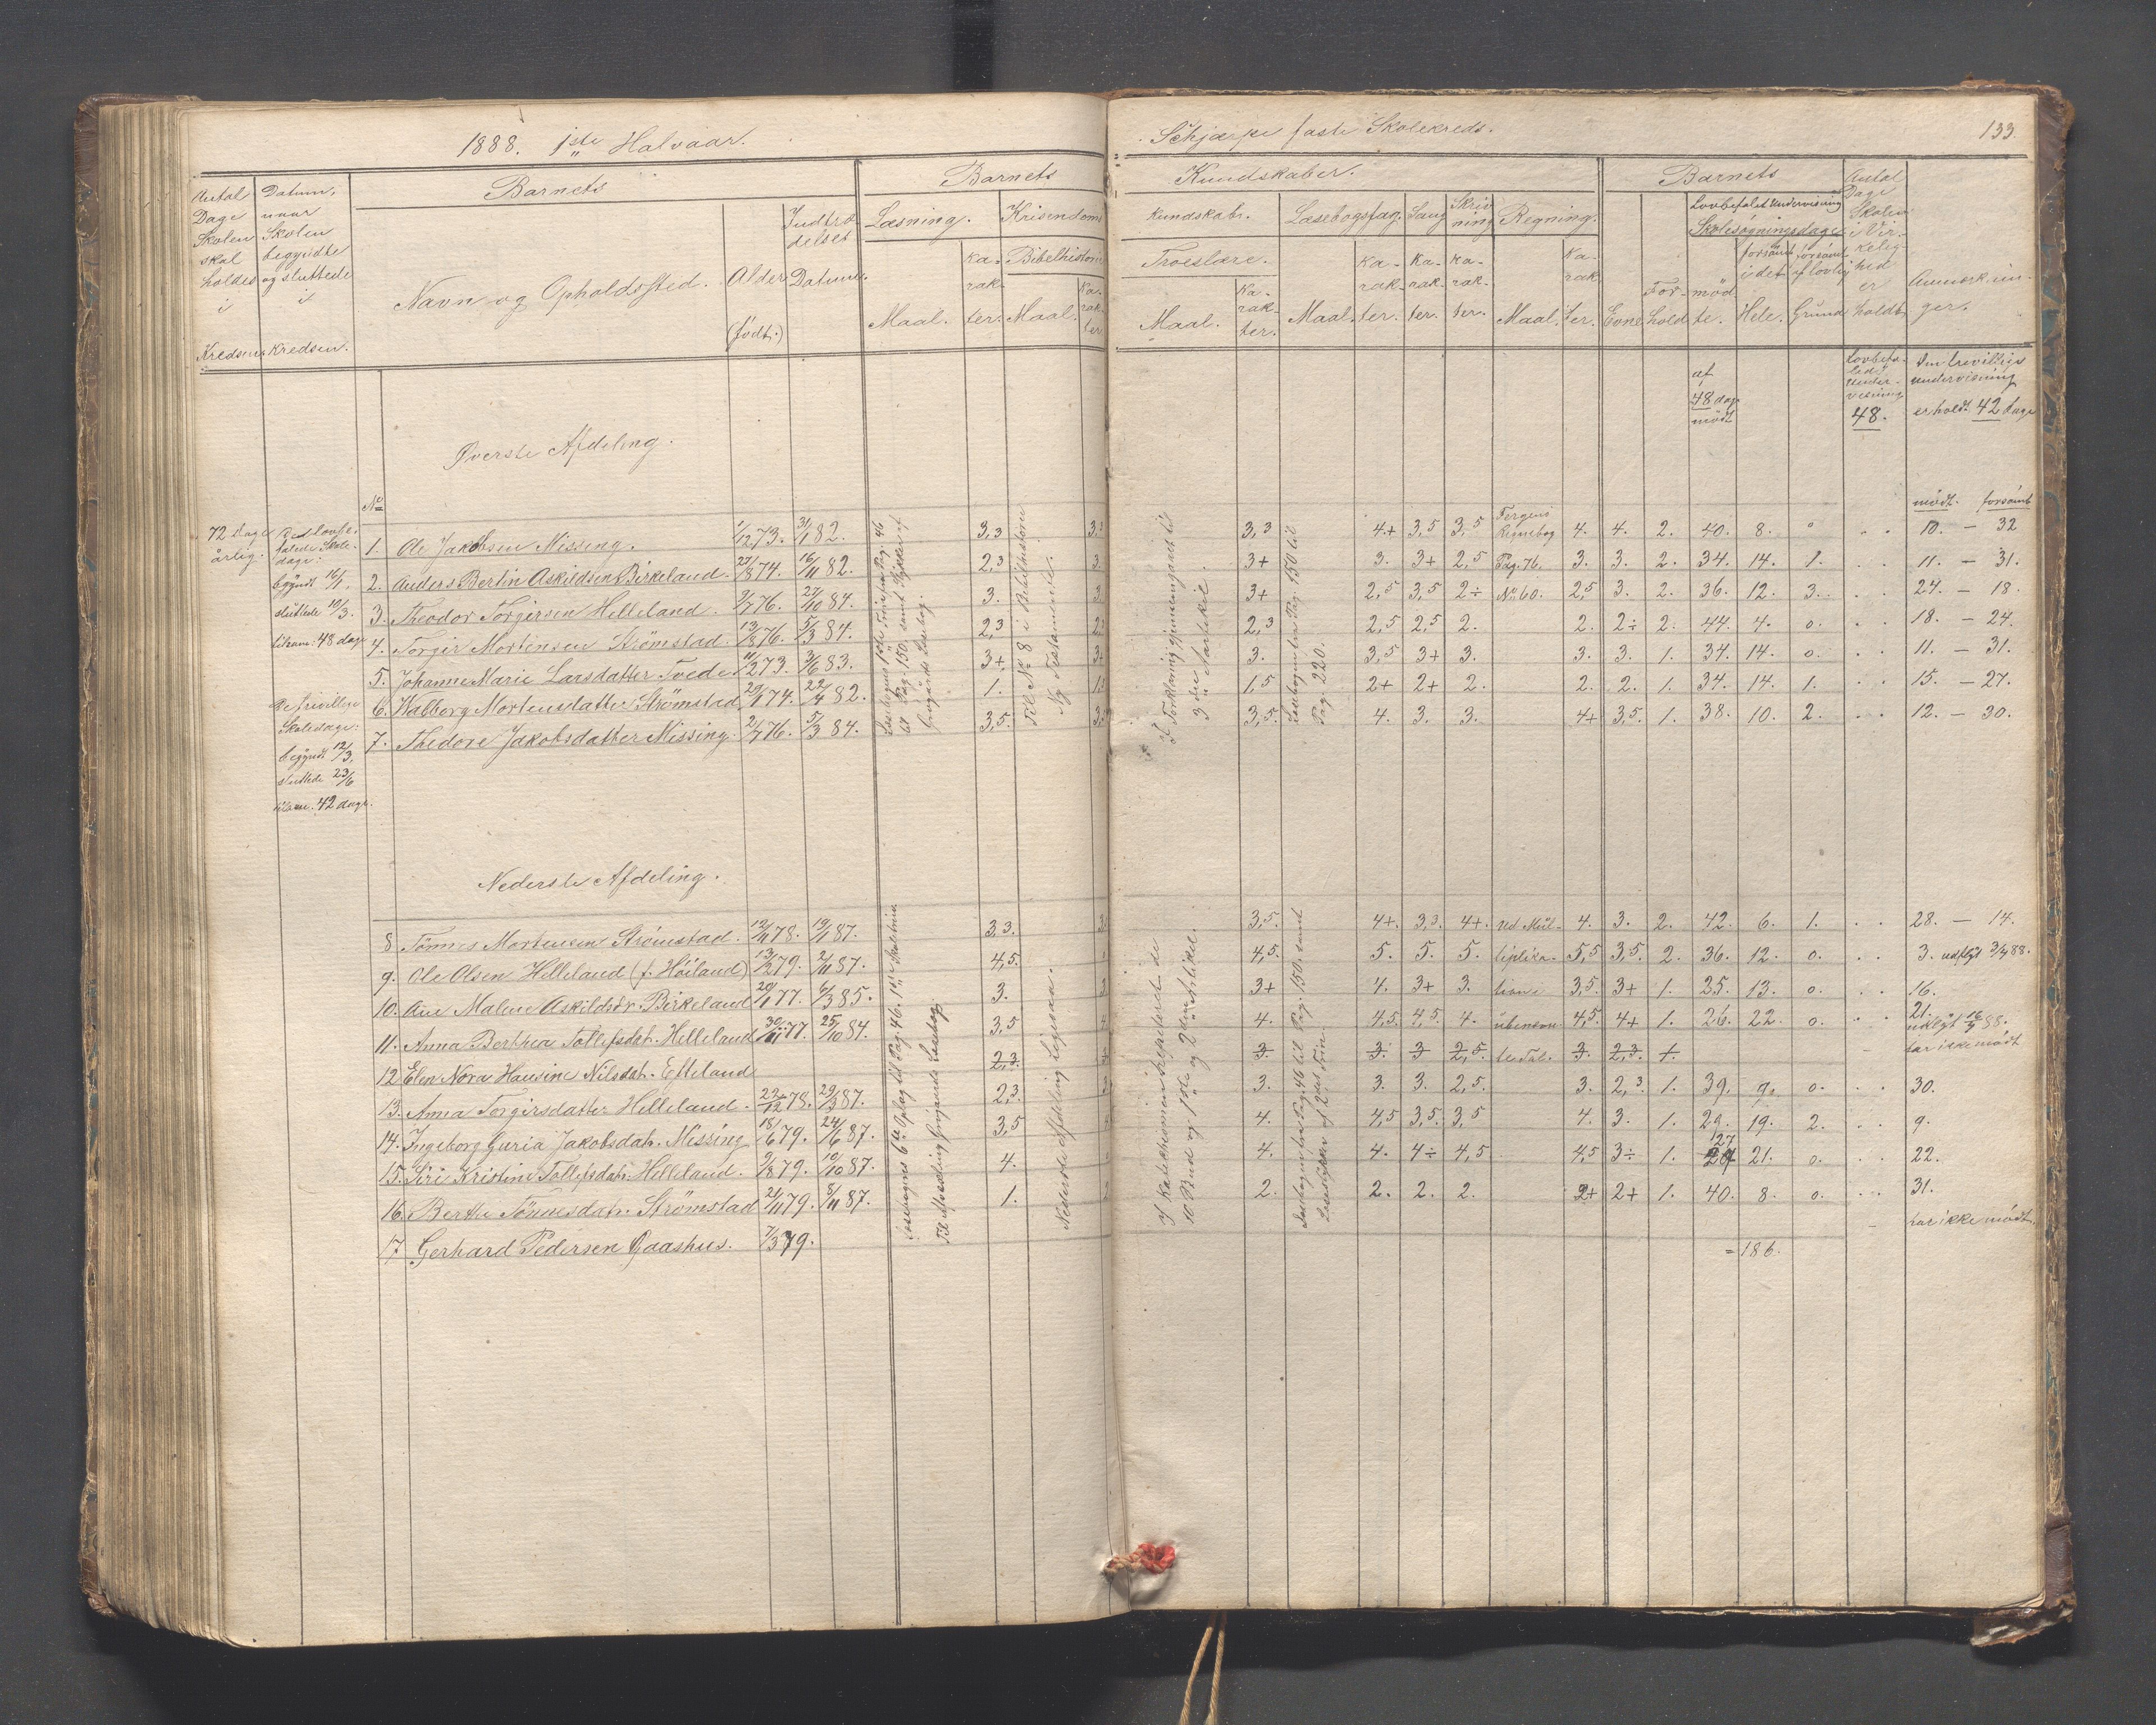 1888. 1ste Halvaar.
Schjærpe faste Skolekreds. 133.
Antal Dage Skolen skal holdes i Kredsen
Datum, naar Skolen begyndte og sluttede i Kredsen.
Barnets
Navn og Opholdssted.
Alder (født.)
Indtrædelses Datum.
Barnets
Læsning.
Maal.
Ka-rak-ter.
Kristendoms
Bibelhistorie
Maal.
Ka-rak-ter.
Kundskaber.
Kundskabr.
Troeslære.
Maal.
Ka-rak-ter.
Læsebogsfag.
Maal.
Ka-rak-ter.
Sang
Ka-rak-ter.
Skriv ning
Ka-rak-ter.
Regning.
Maal.
Ka-rak ter.
Barnets
Evne
For-hold
Lovbefalet Undervisning
Skolesøgningsdage
mød te.
forsømt i det Hele.
forsømt af lovlig Grund
Antal Dage Skolen i Vir-kelig-hed er holdt
Anmærkninger.
af 48 dage mødt
Lovbefa-lede Under-visning 48.
den frivillige undervisning er holdt 42 dage
Øverste Afdeling.
No
mødt. forsømt
72 dage årlig.
Red lovbefalede Skoledage.
begyndt 16/1.
sluttede 10/3.
tilsam: 48 dage
de frivillige Skoledage:
begyndt 12/3,
sluttede 23/6
tilsam. 42 dage.
1. Ole Jakobsen Missing. 1/12 73. 31/1 82. 3,3 3,3 3,3 4+ 3,5 3,5 4. 4. 2. 40. 8. 0 10. — 32
2. Anders Bertin Askildsen Birkeland. 27/8 74. 16/11 82. 2,3 3. 3+ 3. 3+ 2,5 3. 3. 2. 34. 14. 1. 11. — 31.
3. Theodor Torgersen Helleland. 9/7 76. 27/10 84. 3. 3. 3+ 2,5 3,5 2÷ 2,5 3. 2. 36. 12. 3. 24. — 18.
4. Torgir Mortensen Strömstad. 13/8 76. 5/3 84. 2,3 2,3 2,3 2,5 2,5 2. 2. 2÷ 2. 44. 4. 0. 18. — 24.
5. Johanne Marie Larsdatter Tvede 11/12 73. 3/6 83. 3+ 3+ 3. 3,5 3+ 3. 3. 3. 1. 34. 14. 0. 11. — 31.
6. Walborg Mortensdatter Strömstad 20/1 74. 22/4 82. 1. 1,5 2+ 2+ 2. 2. 2. 1. 34. 14. 1. 15. — 27.
7. Thedore Jakobsdatter Missing. 2/7 76. 5/3 84. 3,5. 3,5. 4. 3. 3. 4+ 3,5. 1. 38. 10. 2. 12. — 30.
Læsebogens 1ste Trin fra Pag. 46
til Pag. 150. samt Stykker af
Grøgårds Læsebog.
Til No 8 i Bibelhistorie
Ny Testamente.
af Forklaring gjennemgaaet til
3die Artikel.
Læsebogen fra Pag. 150 til
Pag. 220.
Fergens
Regnebog
Pag. 76.
No 60.
Nederste Afdeling.
8 Tönnes Mortensen Strömstad. 12/11 78. 19/1 87. 3,3. 3,5. 4+. 3,3. 4+. ved Mul- 4. 3. 2. 42. 6. 1. 28. — 14.
9. Ole Olsen Helleland (f. Höiland) 13/2 79. 2/11 87. 4,5. 4,5. 5. 5. 5. liplika- 5,5 3,5. 2. 36. 12. 0. 3. udflyt 3/4 88.
10. Ane Malene Askildsdr. Birkeland 20/1 77. 6/3 85. 3. 3+ 4. 3+ 3. tion i 3,5. 3+ 1. 35. 13. 0. 16.
11. Anna Berthea Tollefsdat. Helleland 30/11 77. 25/10 84. 3,5 4. 4,5. 4,5. 4. ubenævn- 4,5. 4+ 1. 26. 22. 0. 21. udflyt 16/4 88.
12 Elen Nora Hansine Nilsdat. Efteland 2,3. 3. 3. 3 2,5. te Tal. 3. 2,3. 1. har ikke mødt
13. Anna Torgirsdatter Helleland. 22/12 78. 29/3 87. 2,3. 3. 3. 3. 2,5. 3. 2,3 1. 39. 9. 0. 30.
14. Ingeborg Guria Jakobsdatr. Missing 18/6 79. 24/6 87. 3,5 4. 4,5 3,5. 3,5 4. 3. 1. 29. 19. 2. 9.
15. Siri Kristine Tollefsdatr. Helleland. 9/8 79. 10/10 87. 4. 4. 4. 4÷ 4,5 4,5 3÷ 1. 27 21. 0. 22.
16. Berthe Tönnesdatr. Strömstad 21/11 79. 8/11 87. 1. 2. 2. 2. 2. 2+ 2+ 1. 40. 8. 0. 31.
17 Gerhard Pedersen Gaashus. 7/3 79. har ikke mødt.
= 186.
Læsebogens 6te Oplag til Pag. 46. 1ste Skoletrin.
Til Afveksling Grøgaards Læsebog.
Nederste Afdeling Ligesaa.
af Katekismen repeteret de
10 Bud og 1ste og 2den Artikel.
Læsebogen fra Pag. 46 til Pag. 150. samt
Læsestykker af 2det Trin.